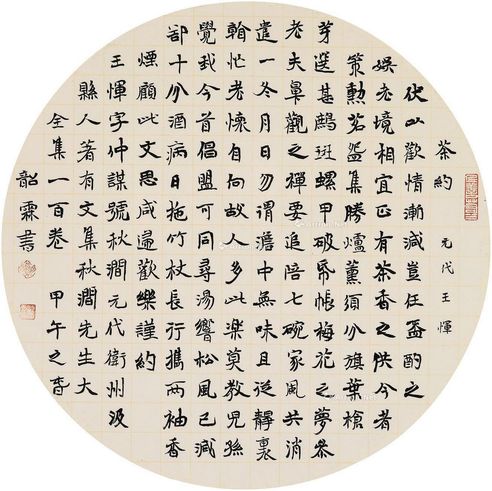 茶約 元代王惲
伏以歡情漸減豈任盃酌之
娛老境相宜正有茶香之供今者
策勲茗盌集勝爐薰須分旗葉槍
芽選甚鷓斑螺甲破昏帳梅花之夢參
老夫觀之禪要追陪七碗家風共消
遣一冬月日勿謂澹中無味且從靜裏
翰忙老懷自向故人多此樂莫教兒孫
覺我今首倡盟可同尋湯響松風已減
卻十分酒病日拖竹杖長行攜兩袖香
煙顧此文思咸遍歡樂謹約
王惲字仲謀號秋澗元代衛州汲
縣人著有文集秋澗先生大
全集一百卷 甲午之春
韶霖書